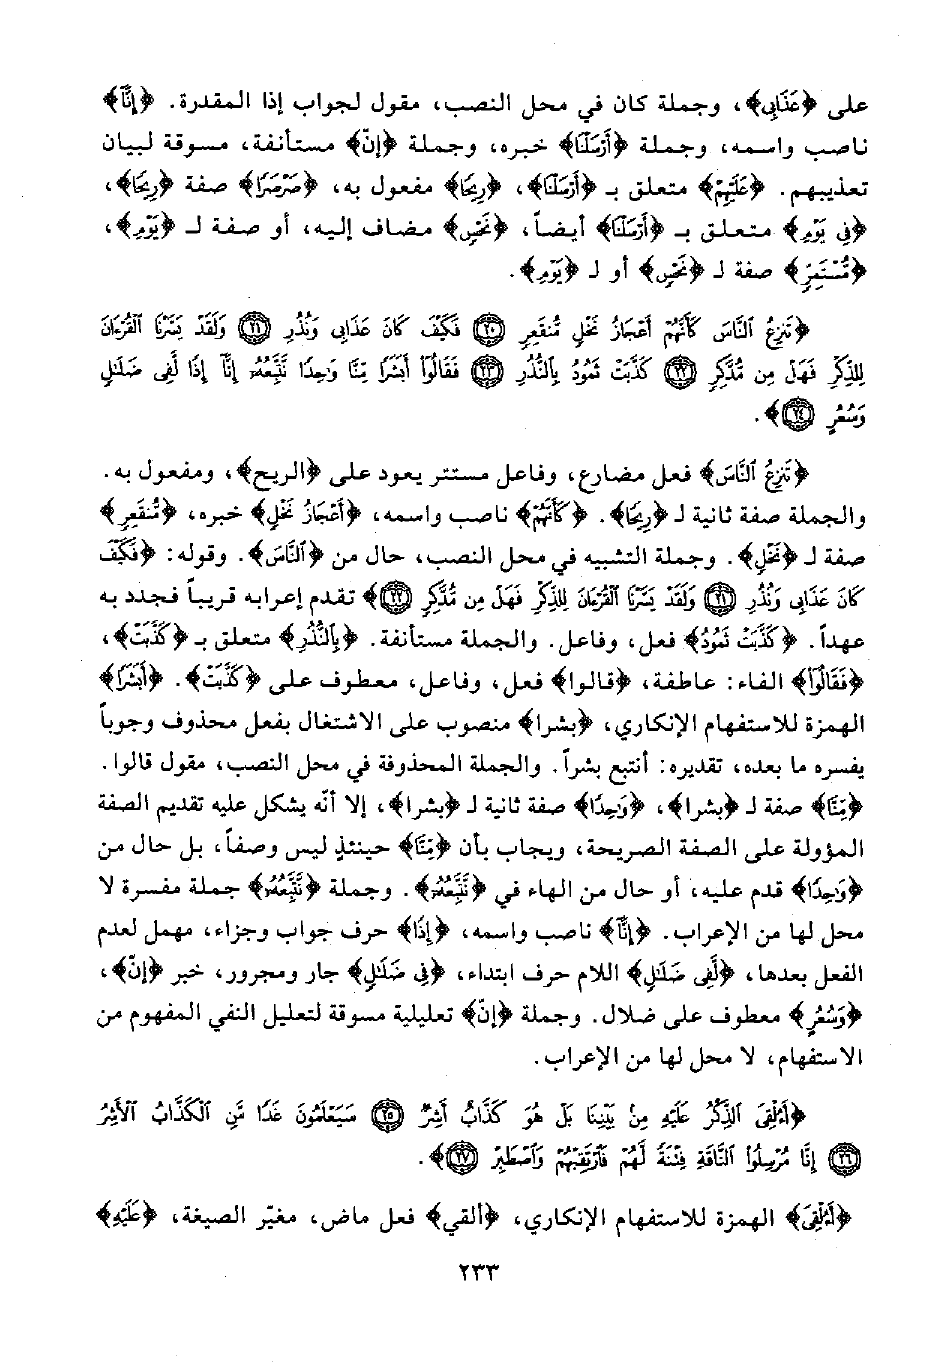 على ﴿عَذَابِى﴾، وجملة كان في محل النصب، مقول لجواب إذا المقدرة. ﴿إِنَّآ﴾
ناصب واسمه، وجملة ﴿أَرْسَلْنَا﴾ خبره، وجملة ﴿إنّ﴾ مستأنفة، مسوقة لبيان
تعذيبهم. ﴿عَلَيْهِمْ﴾ متعلق بـ ﴿أَرْسَلْنَا﴾، ﴿رِيحًا﴾ مفعول به، ﴿صَرْصَرًا﴾ صفة ﴿رِيحًا﴾،
﴿فِى يَوْمِ﴾ متعلق بـ ﴿أَرْسَلْنَا﴾ أيضاً، ﴿نَحْسٍ﴾ مضاف إليه، أو صفة لـ ﴿يَوْمِ﴾،
﴿مُّسْتَمِرٍّ﴾ صفة لـ ﴿نَحْسٍ﴾ أو لـ ﴿يَوْمِ﴾.
﴿تَنزِعُ ٱلنَّاسَ كَأَنَّهُمْ أَعْجَازُ نَخْلٍ مُّنقَعِرٍ ۝٢٠ فَكَيْفَ كَانَ عَذَابِى وَنُذُرِ ۝٢١ وَلَقَدْ يَسَّرْنَا ٱلْقُرْءَانَ
لِلذِّكْرِ فَهَلْ مِن مُّدَّكِرٍ ۝٢٢ كَذَّبَتْ ثَمُودُ بِٱلنُّذُرِ ۝٢٣ فَقَالُوٓا۟ أَبَشَرًا مِّنَّا وَٰحِدًا نَّتَّبِعُهُۥٓ إِنَّآ إِذًا لَّفِى ضَلَٰلٍ
وَسُعُرٍ ۝٢٤﴾.
﴿تَنزِعُ ٱلنَّاسَ﴾ فعل مضارع، وفاعل مستتر يعود على ﴿الريح﴾، ومفعول به.
والجملة صفة ثانية لـ ﴿رِيحًا﴾. ﴿كَأَنَّهُمْ﴾ ناصب واسمه، ﴿أَعْجَازُ نَخْلٍ﴾ خبره، ﴿مُّنقَعِرٍ﴾
صفة لـ ﴿نَخْلٍ﴾. وجملة التشبيه في محل النصب، حال من ﴿ٱلنَّاسَ﴾. وقوله: ﴿فَكَيْفَ
كَانَ عَذَابِى وَنُذُرِ ۝٢١ وَلَقَدْ يَسَّرْنَا ٱلْقُرْءَانَ لِلذِّكْرِ فَهَلْ مِن مُّدَّكِرٍ ۝٢٢﴾ تقدم إعرابه قريباً فجدد به
عهداً. ﴿كَذَّبَتْ ثَمُودُ﴾ فعل، وفاعل. والجملة مستأنفة. ﴿بِٱلنُّذُرِ﴾ متعلق بـ ﴿كَذَّبَتْ﴾،
﴿فَقَالُوٓا۟﴾ الفاء: عاطفة، ﴿قالوا﴾ فعل، وفاعل، معطوف على ﴿كَذَّبَتْ﴾. ﴿أَبَشَرًا﴾
الهمزة للاستفهام الإنكاري، ﴿بشرا﴾ منصوب على الاشتغال بفعل محذوف وجوباً
يفسره ما بعده، تقديره: أنتبع بشراً. والجملة المحذوفة في محل النصب، مقول قالوا.
﴿مِّنَّا﴾ صفة لـ ﴿بشرا﴾، ﴿وَٰحِدًا﴾ صفة ثانية لـ ﴿بشرا﴾، إلا أنّه يشكل عليه تقديم الصفة
المؤولة على الصفة الصريحة، ويجاب بأن ﴿مِّنَّا﴾ حينئذٍ ليس وصفاً، بل حال من
﴿وَٰحِدًا﴾ قدم عليه، أو حال من الهاء في ﴿نَّتَّبِعُهُۥٓ﴾. وجملة ﴿نَّتَّبِعُهُۥٓ﴾ جملة مفسرة لا
محل لها من الإعراب. ﴿إِنَّآ﴾ ناصب واسمه، ﴿إِذًا﴾ حرف جواب وجزاء، مهمل لعدم
الفعل بعدها، ﴿لَّفِى ضَلَٰلٍ﴾ اللام حرف ابتداء، ﴿فِى ضَلَٰلٍ﴾ جار ومجرور، خبر ﴿إنّ﴾،
﴿وَسُعُرٍ﴾ معطوف على ضلال. وجملة ﴿إنّ﴾ تعليلية مسوقة لتعليل النفي المفهوم من
الاستفهام، لا محل لها من الإعراب.
﴿أَءُلْقِىَ ٱلذِّكْرُ عَلَيْهِ مِنۢ بَيْنِنَا بَلْ هُوَ كَذَّابٌ أَشِرٌ ۝٢٥ سَيَعْلَمُونَ غَدًا مَّنِ ٱلْكَذَّابُ ٱلْأَشِرُ
۝٢٦ إِنَّا مُرْسِلُوا۟ ٱلنَّاقَةِ فِتْنَةً لَّهُمْ فَٱرْتَقِبْهُمْ وَٱصْطَبِرْ ۝٢٧﴾.
﴿أَءُلْقِىَ﴾ الهمزة للاستفهام الإنكاري، ﴿ألقي﴾ فعل ماض، مغيّر الصيغة، ﴿عَلَيْهِ﴾
٢٣٣